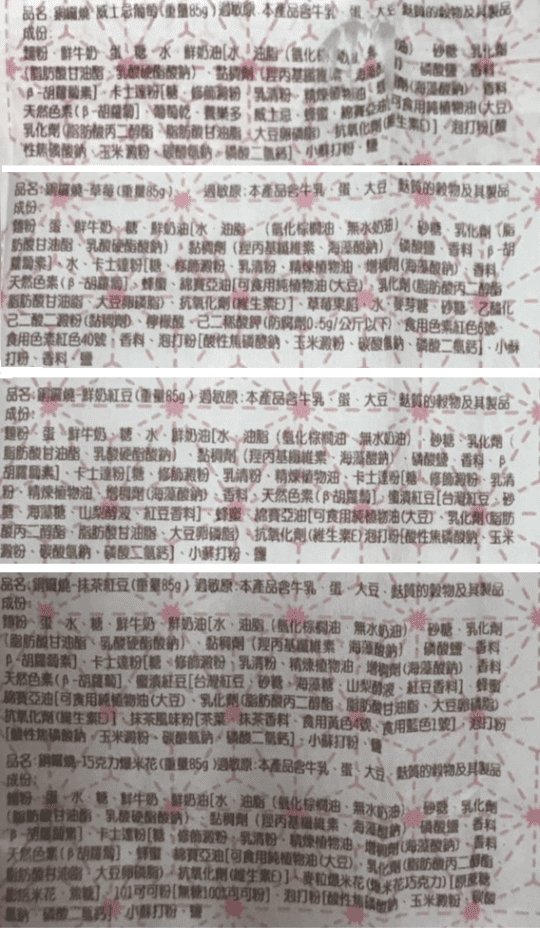 品名:銅鑼燒-威士忌葡萄(重量85g) 過敏原:本產品含牛乳、蛋、大豆、麩質的穀物及其製品
成份:
麵粉、鮮牛奶、蛋、糖、水、鮮奶油[水、油脂、(氫化棕櫚油)、砂糖、乳化劑
(脂肪酸甘油酯、乳酸硬酯酸鈉)、黏稠劑(羥丙基纖維素、海藻酸鈉)、磷酸鹽、香料、
β-胡蘿蔔素]、卡士達粉[糖、修飾澱粉、乳清粉、精煉植物油、香料、
天然色素(β-胡蘿蔔)、葡萄乾、養樂多、威士忌、蜂蜜、綿賽亞油[可食用純植物油(大豆)
乳化劑(脂肪酸丙二醇酯、脂肪酸甘油酯、大豆卵磷脂)、抗氧化劑(維生素E)]、泡打粉[酸
性焦磷酸鈉、玉米澱粉、碳酸氫鈉、磷酸二氫鈣]、小蘇打粉、鹽
品名:銅鑼燒-草莓(重量85g) 過敏原:本產品含牛乳、蛋、大豆、麩質的穀物及其製品
成份:
麵粉、蛋、鮮牛奶、糖、水、鮮奶油[水、油脂、(氫化棕櫚油、無水奶油)、砂糖、乳化劑(脂
肪酸甘油酯、乳酸硬酯酸鈉)、黏稠劑(羥丙基纖維素、海藻酸鈉)、磷酸鹽、香料、β-胡
蘿蔔素]、水、卡士達粉[糖、修飾澱粉、乳清粉、精煉植物油、增稠劑(海藻酸鈉)、香料、
天然色素(β-胡蘿蔔)]、蜂蜜、綿賽亞油[可食用純植物油(大豆)、乳化劑(脂肪酸丙二醇酯
脂肪酸甘油酯、大豆卵磷脂)、抗氧化劑(維生素E)]、草莓果餡[水、麥芽糖、砂糖、乙醯化
己二酸二澱粉(黏稠劑)、檸檬酸、己二烯酸鉀(防腐劑0.5g/公斤以下)、食用色素紅色6號、
食用色素紅色40號、香料、泡打粉[酸性焦磷酸鈉、玉米澱粉、碳酸氫鈉、磷酸二氫鈣]、小蘇
打粉、香料、鹽
品名:銅鑼燒-鮮奶紅豆(重量85g) 過敏原:本產品含牛乳、蛋、大豆、麩質的穀物及其製品
成份:
麵粉、蛋、鮮牛奶、糖、水、鮮奶油[水、油脂(氫化棕櫚油、無水奶油)、砂糖、乳化劑(
脂肪酸甘油酯、乳酸硬酯酸鈉)、黏稠劑(羥丙基纖維素、海藻酸鈉)、磷酸鹽、香料、β-
胡蘿蔔素]、卡士達粉[糖、修飾澱粉、乳清粉、精煉植物油、卡士達粉[糖、修飾澱粉、乳清
粉、精煉植物油、增稠劑(海藻酸鈉)、香料、天然色素(β胡蘿蔔)、蜜漬紅豆[台灣紅豆、砂
糖、海藻糖、山梨醇液、紅豆香料]、蜂蜜、綿賽亞油[可食用純植物油(大豆)、乳化劑(脂肪
酸丙二醇酯、脂肪酸甘油酯、大豆卵磷脂)、抗氧化劑(維生素E)泡打粉[酸性焦磷酸鈉、玉米
澱粉、碳酸氫鈉、磷酸二氫鈣]、小蘇打粉、鹽
品名:銅鑼燒-抹茶紅豆(重量85g) 過敏原:本產品含牛乳、蛋、大豆、麩質的穀物及其製品
成份:
麵粉、蛋、水、糖、鮮牛奶、鮮奶油[水、油脂、(氫化棕櫚油、無水奶油)、砂糖、乳化劑
(脂肪酸甘油酯、乳酸硬酯酸鈉)、黏稠劑(羥丙基纖維素、海藻酸鈉)、磷酸鹽、香料、
β-胡蘿蔔素]、卡士達粉[糖、修飾澱粉、乳清粉、精煉植物油、增稠劑(海藻酸鈉)、香料、
天然色素(β-胡蘿蔔)、蜜漬紅豆[台灣紅豆、砂糖、海藻糖、山梨醇液、紅豆香料]、蜂蜜、
綿賽亞油[可食用純植物油(大豆)、乳化劑(脂肪酸丙二醇酯、脂肪酸甘油酯、大豆卵磷脂)
抗氧化劑(維生素E)]、抹茶風味粉[茶葉、抹茶香料、食用黃色4號、食用藍色1號]、泡打粉
[酸性焦磷酸鈉、玉米澱粉、碳酸氫鈉、磷酸二氫鈣]、小蘇打粉、鹽
品名:銅鑼燒-巧克力爆米花(重量85g)過敏原:本產品含牛乳、蛋、大豆、麩質的穀物及其製品
成份:
麵粉、蛋、水、糖、鮮牛奶、鮮奶油[水、油脂、(氫化棕櫚油、無水奶油)、砂糖、乳化劑
(脂肪酸甘油酯、乳酸硬酯酸鈉)、黏稠劑(羥丙基纖維素、海藻酸鈉)、磷酸鹽、香料、
β-胡蘿蔔素]、卡士達粉[糖、修飾澱粉、乳清粉、精煉植物油、增稠劑(海藻酸鈉)、香料、
天然色素(β胡蘿蔔)、蜂蜜、綿賽亞油[可食用純植物油(大豆)、乳化劑(脂肪酸丙二醇酯
脂肪酸甘油酯、大豆卵磷脂)、抗氧化劑(維生素E)]、麥粒爆米花(爆米花巧克力)[原蔗糖
膨脹米花、蔗糖]、101可可粉[無糖100%可可粉]、泡打粉[酸性焦磷酸鈉、玉米澱粉、碳酸
氫鈉、磷酸二氫鈣]、小蘇打粉、鹽